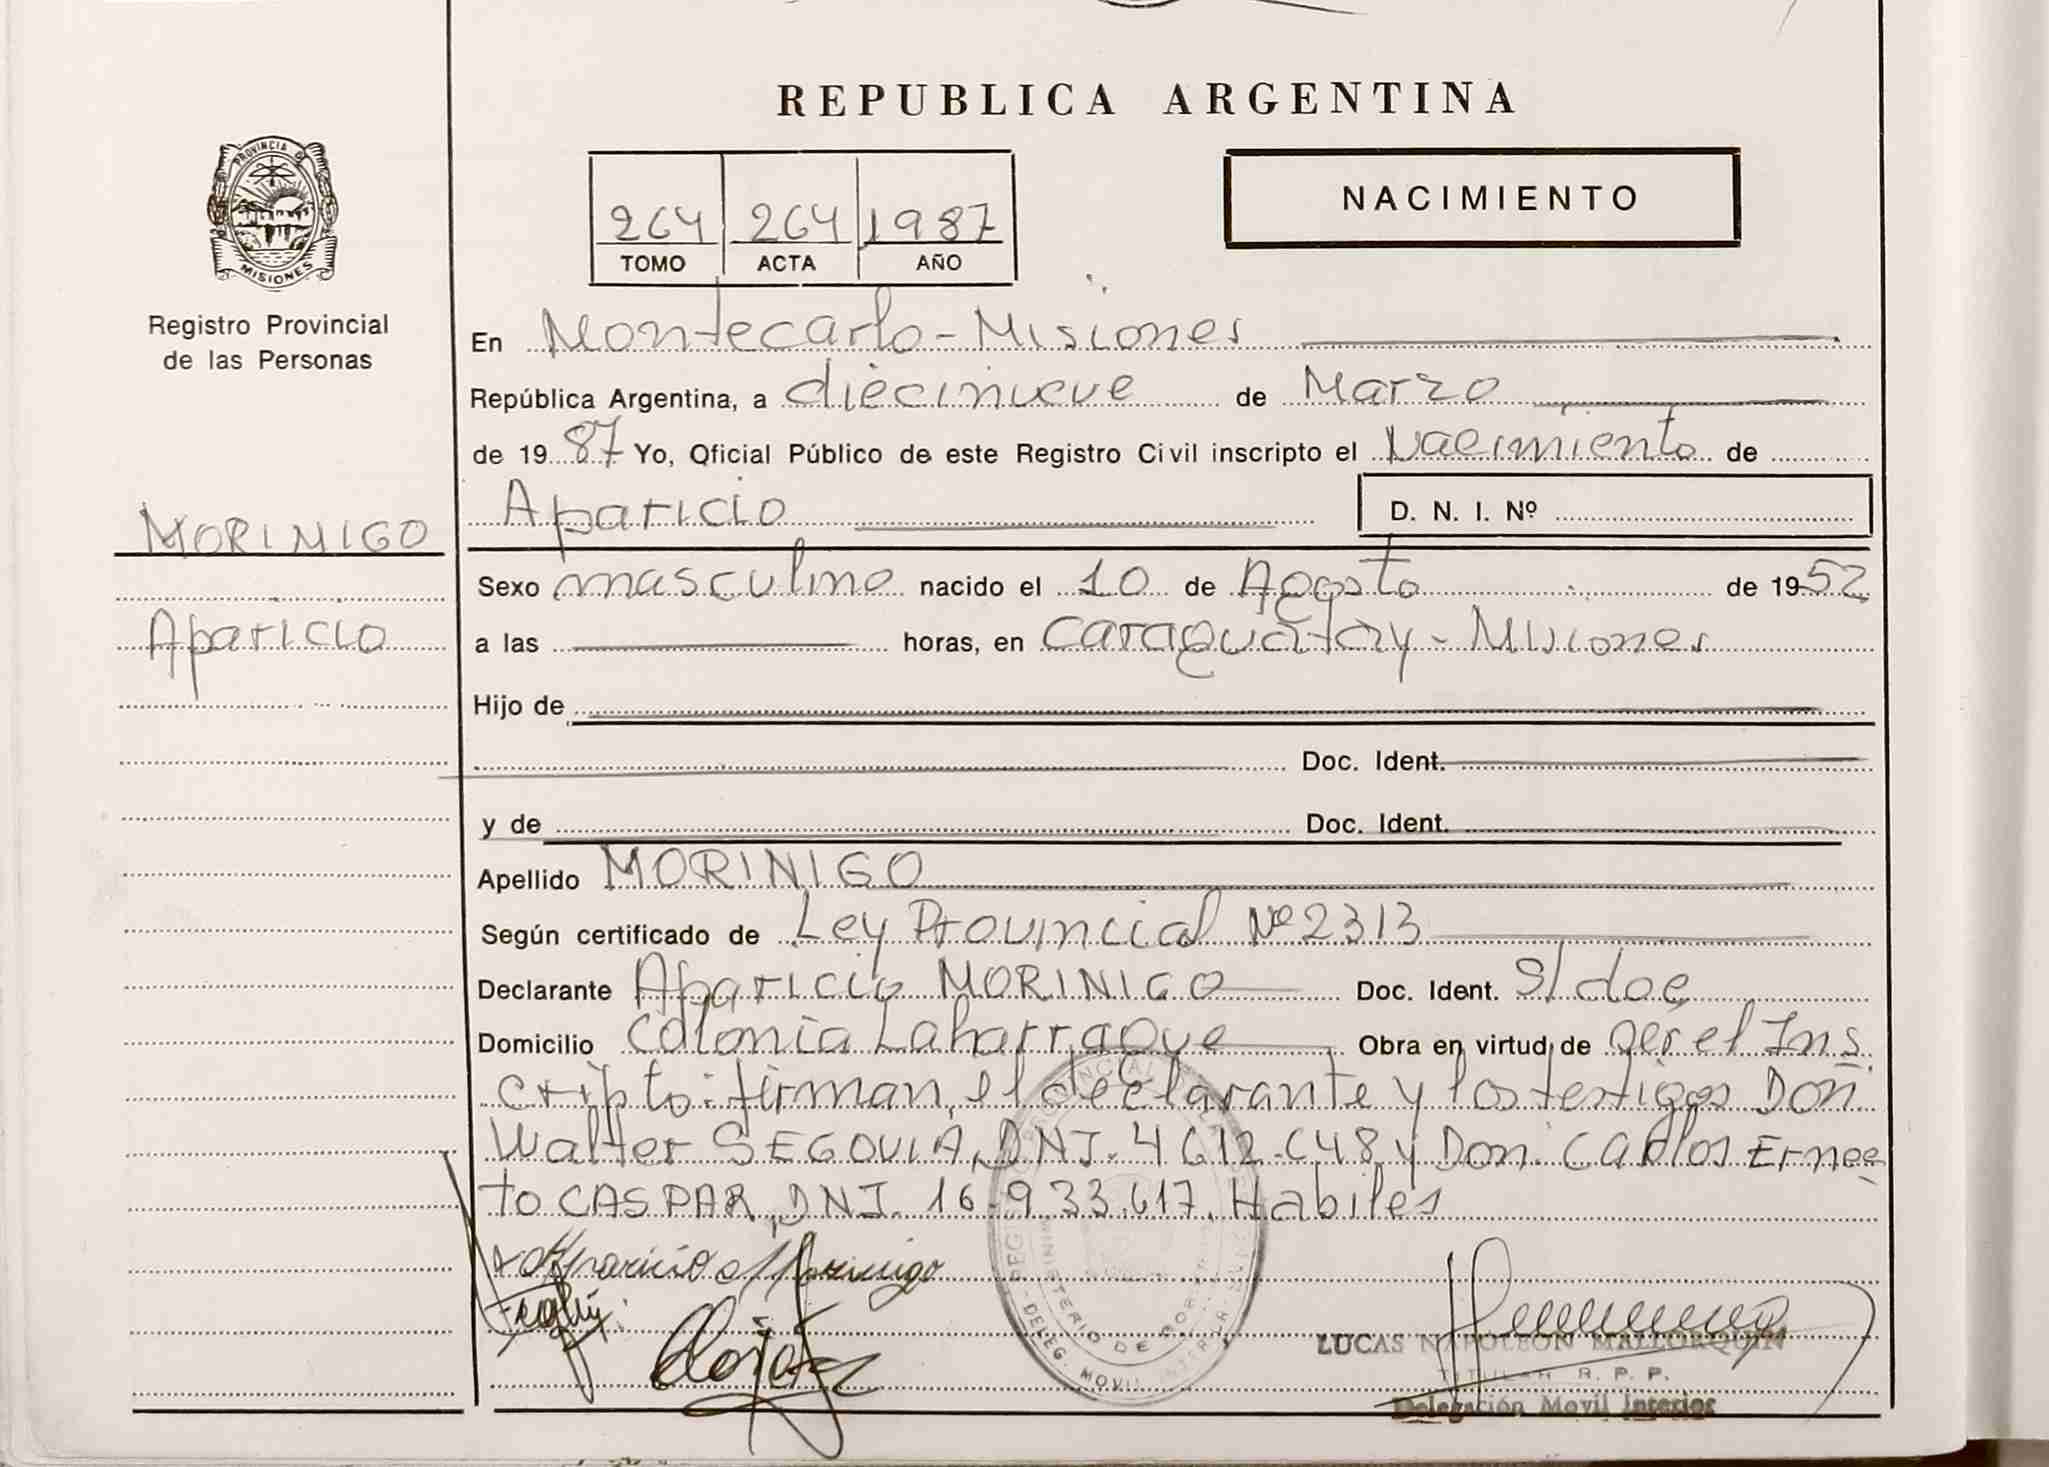 REPUBLICA ARGENTINA
PROVINCIA DE
MISIONES
Registro Provincial
de las Personas
264 264 1987
TOMO ACTA AÑO
NACIMIENTO
En Montecarlo - Misiones
República Argentina, a diecinueve de Marzo
de 1987 Yo, Oficial Público de este Registro Civil inscripto el Nacimiento de
Aparicio D. N. I. Nº
MORINIGO
Aparicio
Sexo masculino nacido el 10 de Agosto de 1952
a las horas, en Caraguatay - Misiones
Hijo de
Doc. Ident.
y de Doc. Ident.
Apellido MORINIGO
Según certificado de Ley Provincial Nº 2313
Declarante Aparicio MORINIGO Doc. Ident. S/doc
Domicilio Colonia Laharrague Obra en virtud de ser el Ins
cripto: firman, el declarante y los testigos Don
Walter SEGOVIA, DNI. 4612.648 y Don. Carlos Ernes
to CASPAR, DNI. 16.933.617. Habiles
Aparicio Morinigo
LUCAS NAPOLEON MALLORQUIN
TITULAR R. P. P.
Delegación Movil Interior